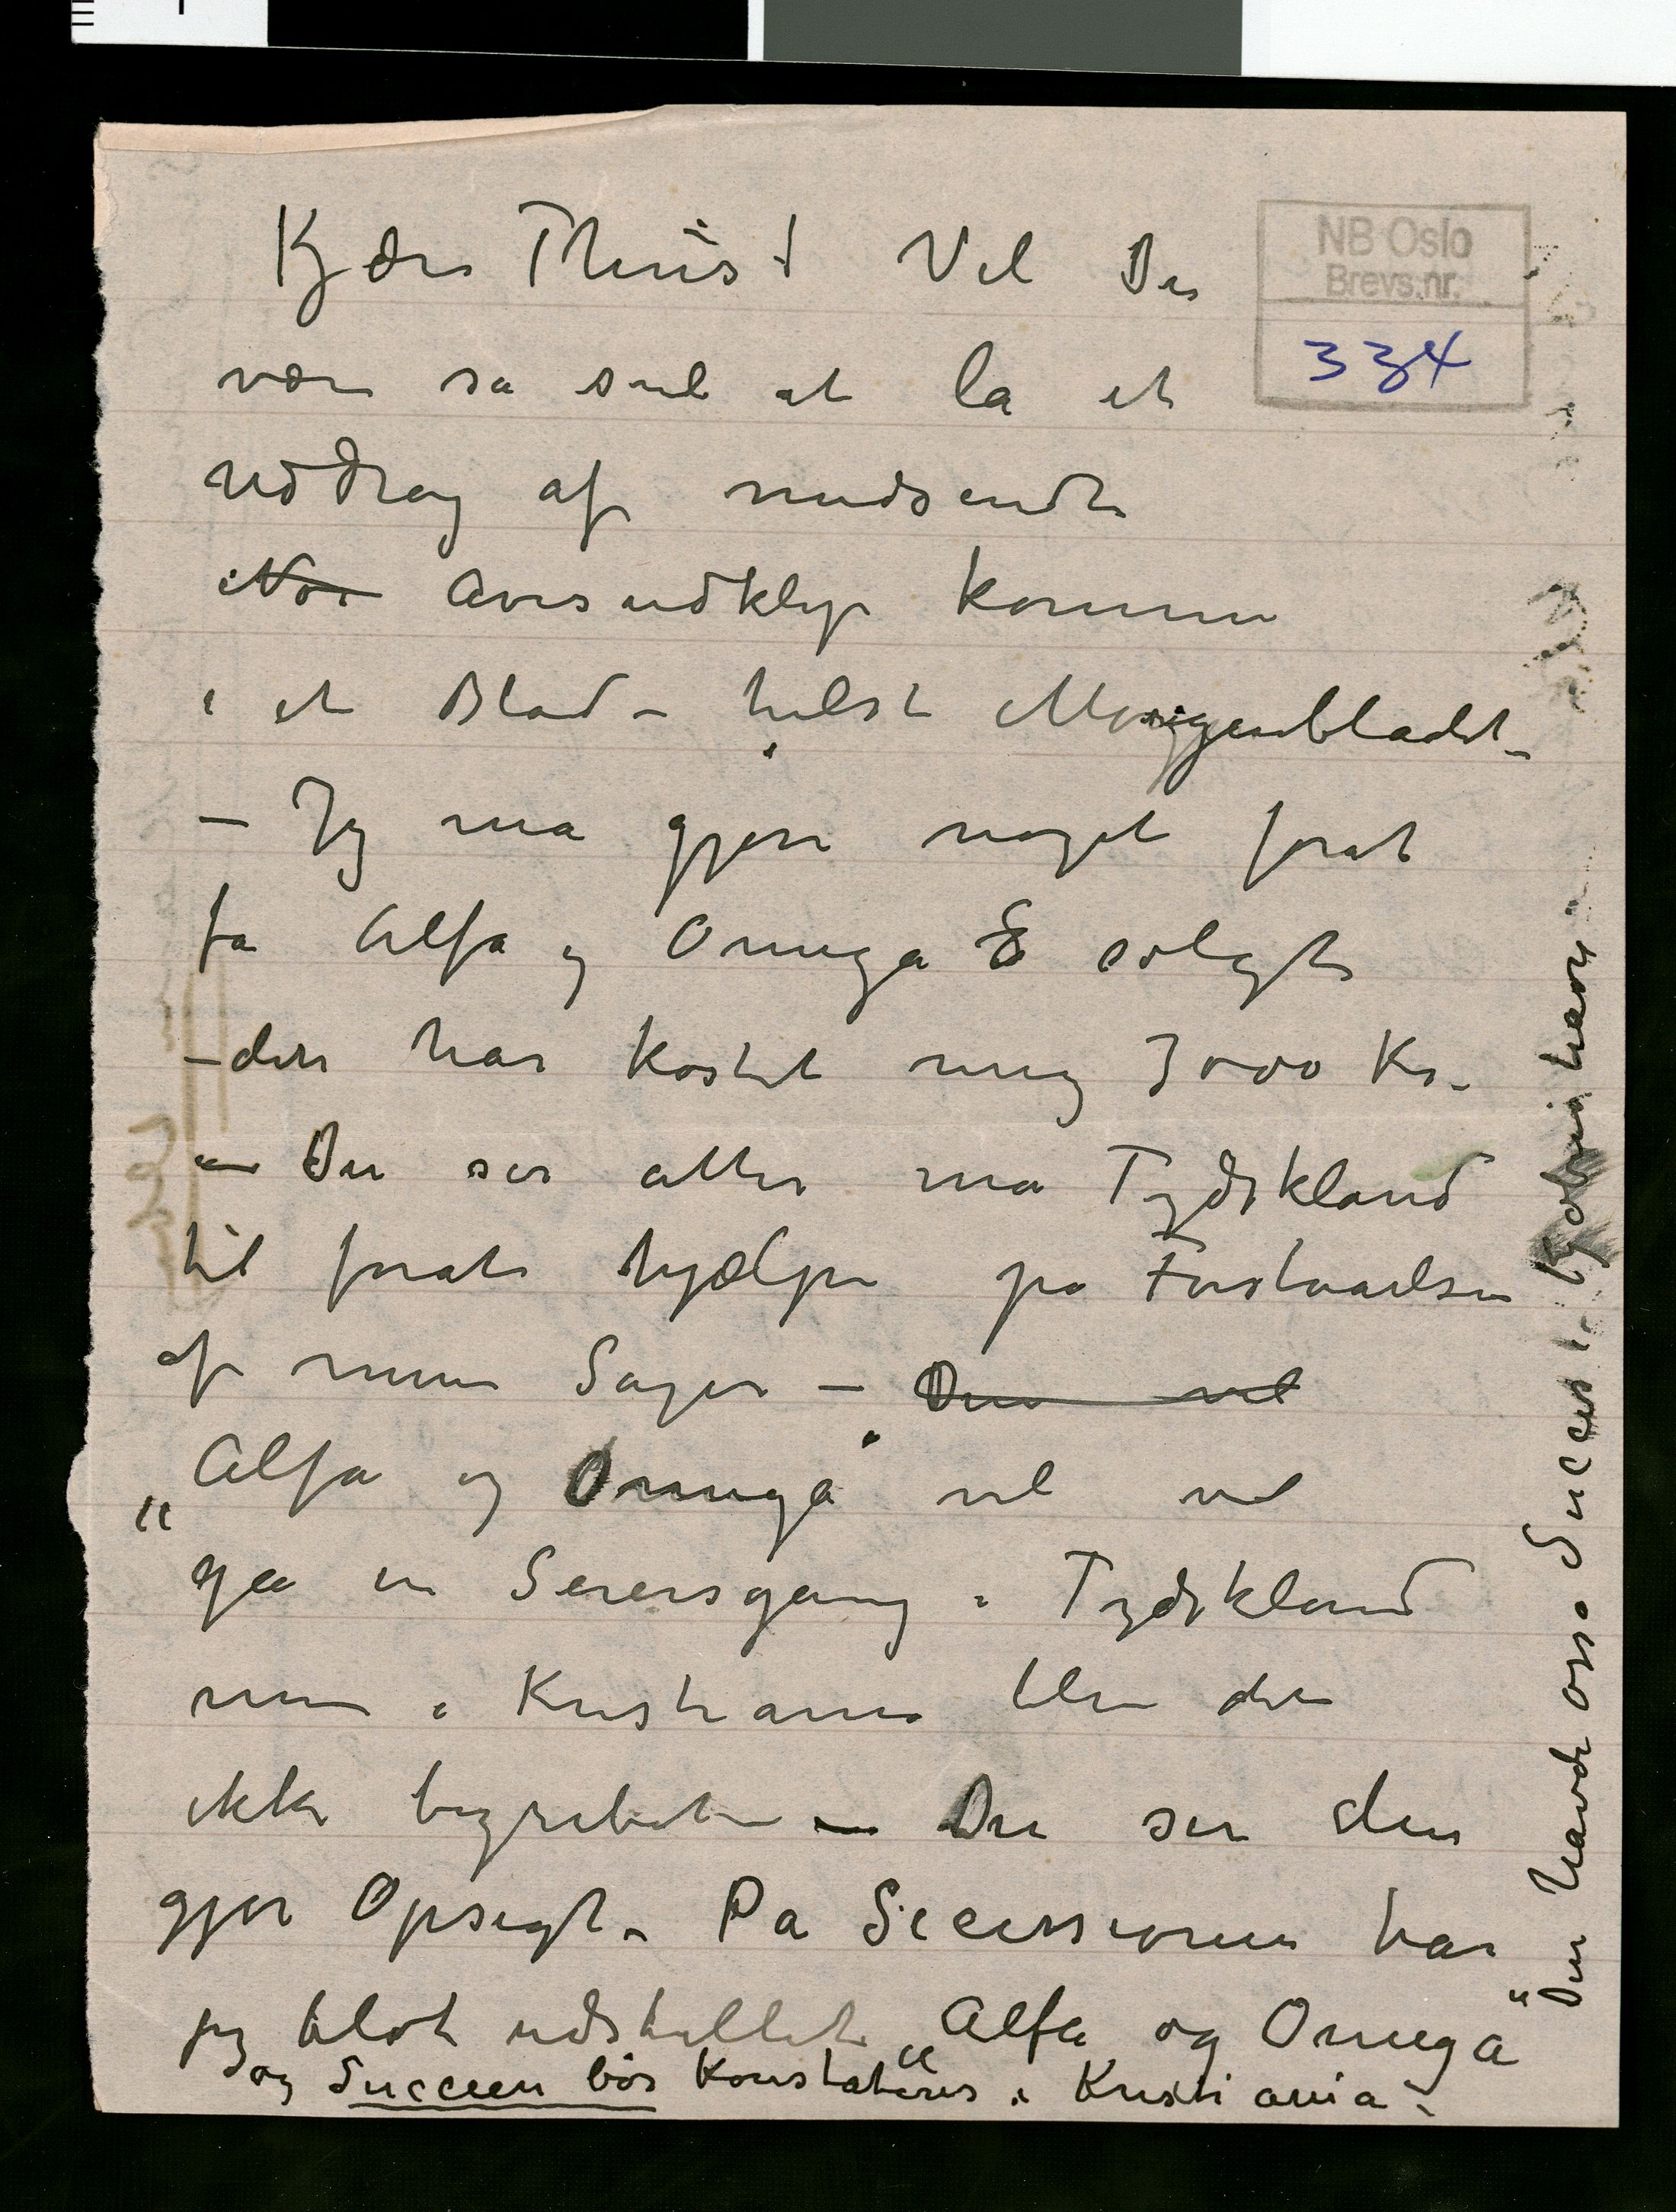 Kjære Thiis! Vil De
NB Oslo
Brevs.nr.
334
være sa snil at la et
uddrag af medsendte
Avisudklip komme
i et Blad – helst Morgenbladet –
– Jeg må gjøre noget forat
fa Alfa og Omega solgt
– det har kostet mig 3000 Kr –
– De ser atter må Tydskland
til forat hjælpe på Forstaaelsen
af mine Sager – Den vil
„Alfa og Omega" vil vel
ga en Seiersgang i Tydskland
men i Kristiania blev det
ikke begrebet – De ser den
gjør Opsigt – Pa Secessionen har
jeg blot udstillet „Alfa og Omega"
og Succeen bør konstateres i Kristiania –
Den havde osso Succes i Kjøbenhavn –